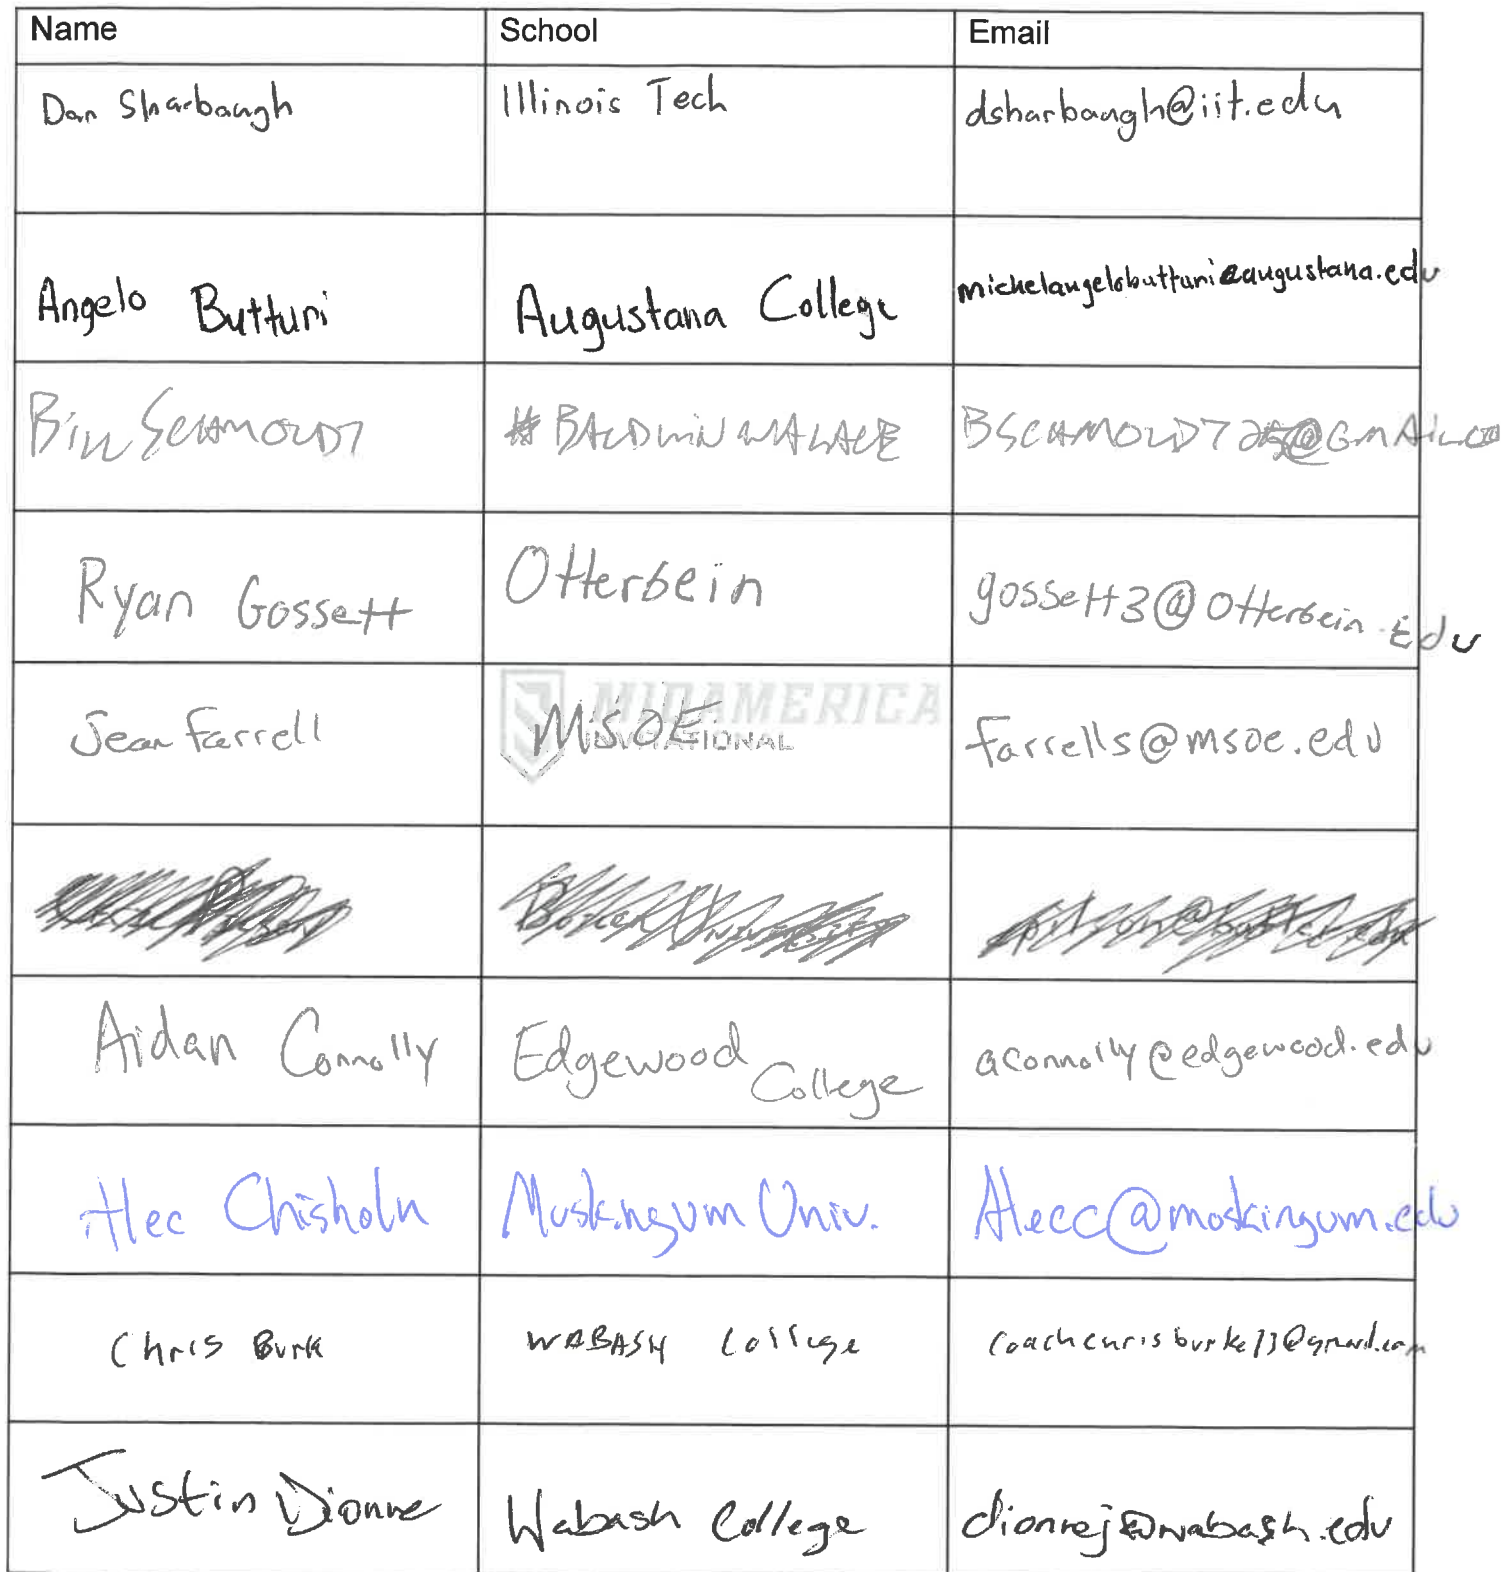 Name School Email
Dan Sharbaugh Illinois Tech dsharbaugh@iit.edu
Angelo Butturi Augustana College michelangelobutturi@augustana.edu
Bill SCHMOLDT #BALDWIN WALACE
Ryan Gossett Otterbein gossett3@Otterbein.Edu
Sean Farrell MSOE farrells@msoe.edu
MIDAMERICA
INVITATIONAL
Aidan Connolly Edgewood College aconnolly@edgewood.edu
Alec Chisholm Muskingum Univ. Alecc@muskingum.edu
Chris Burk WABASH College
Justin Dionne Wabash College dionnej@wabash.edu